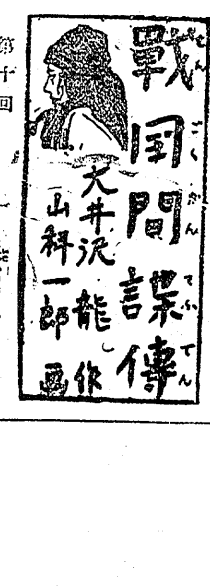 戰国間諜傳
せんごくかんてふでん
大井沢 龍 作
山科一郎 画
第十回